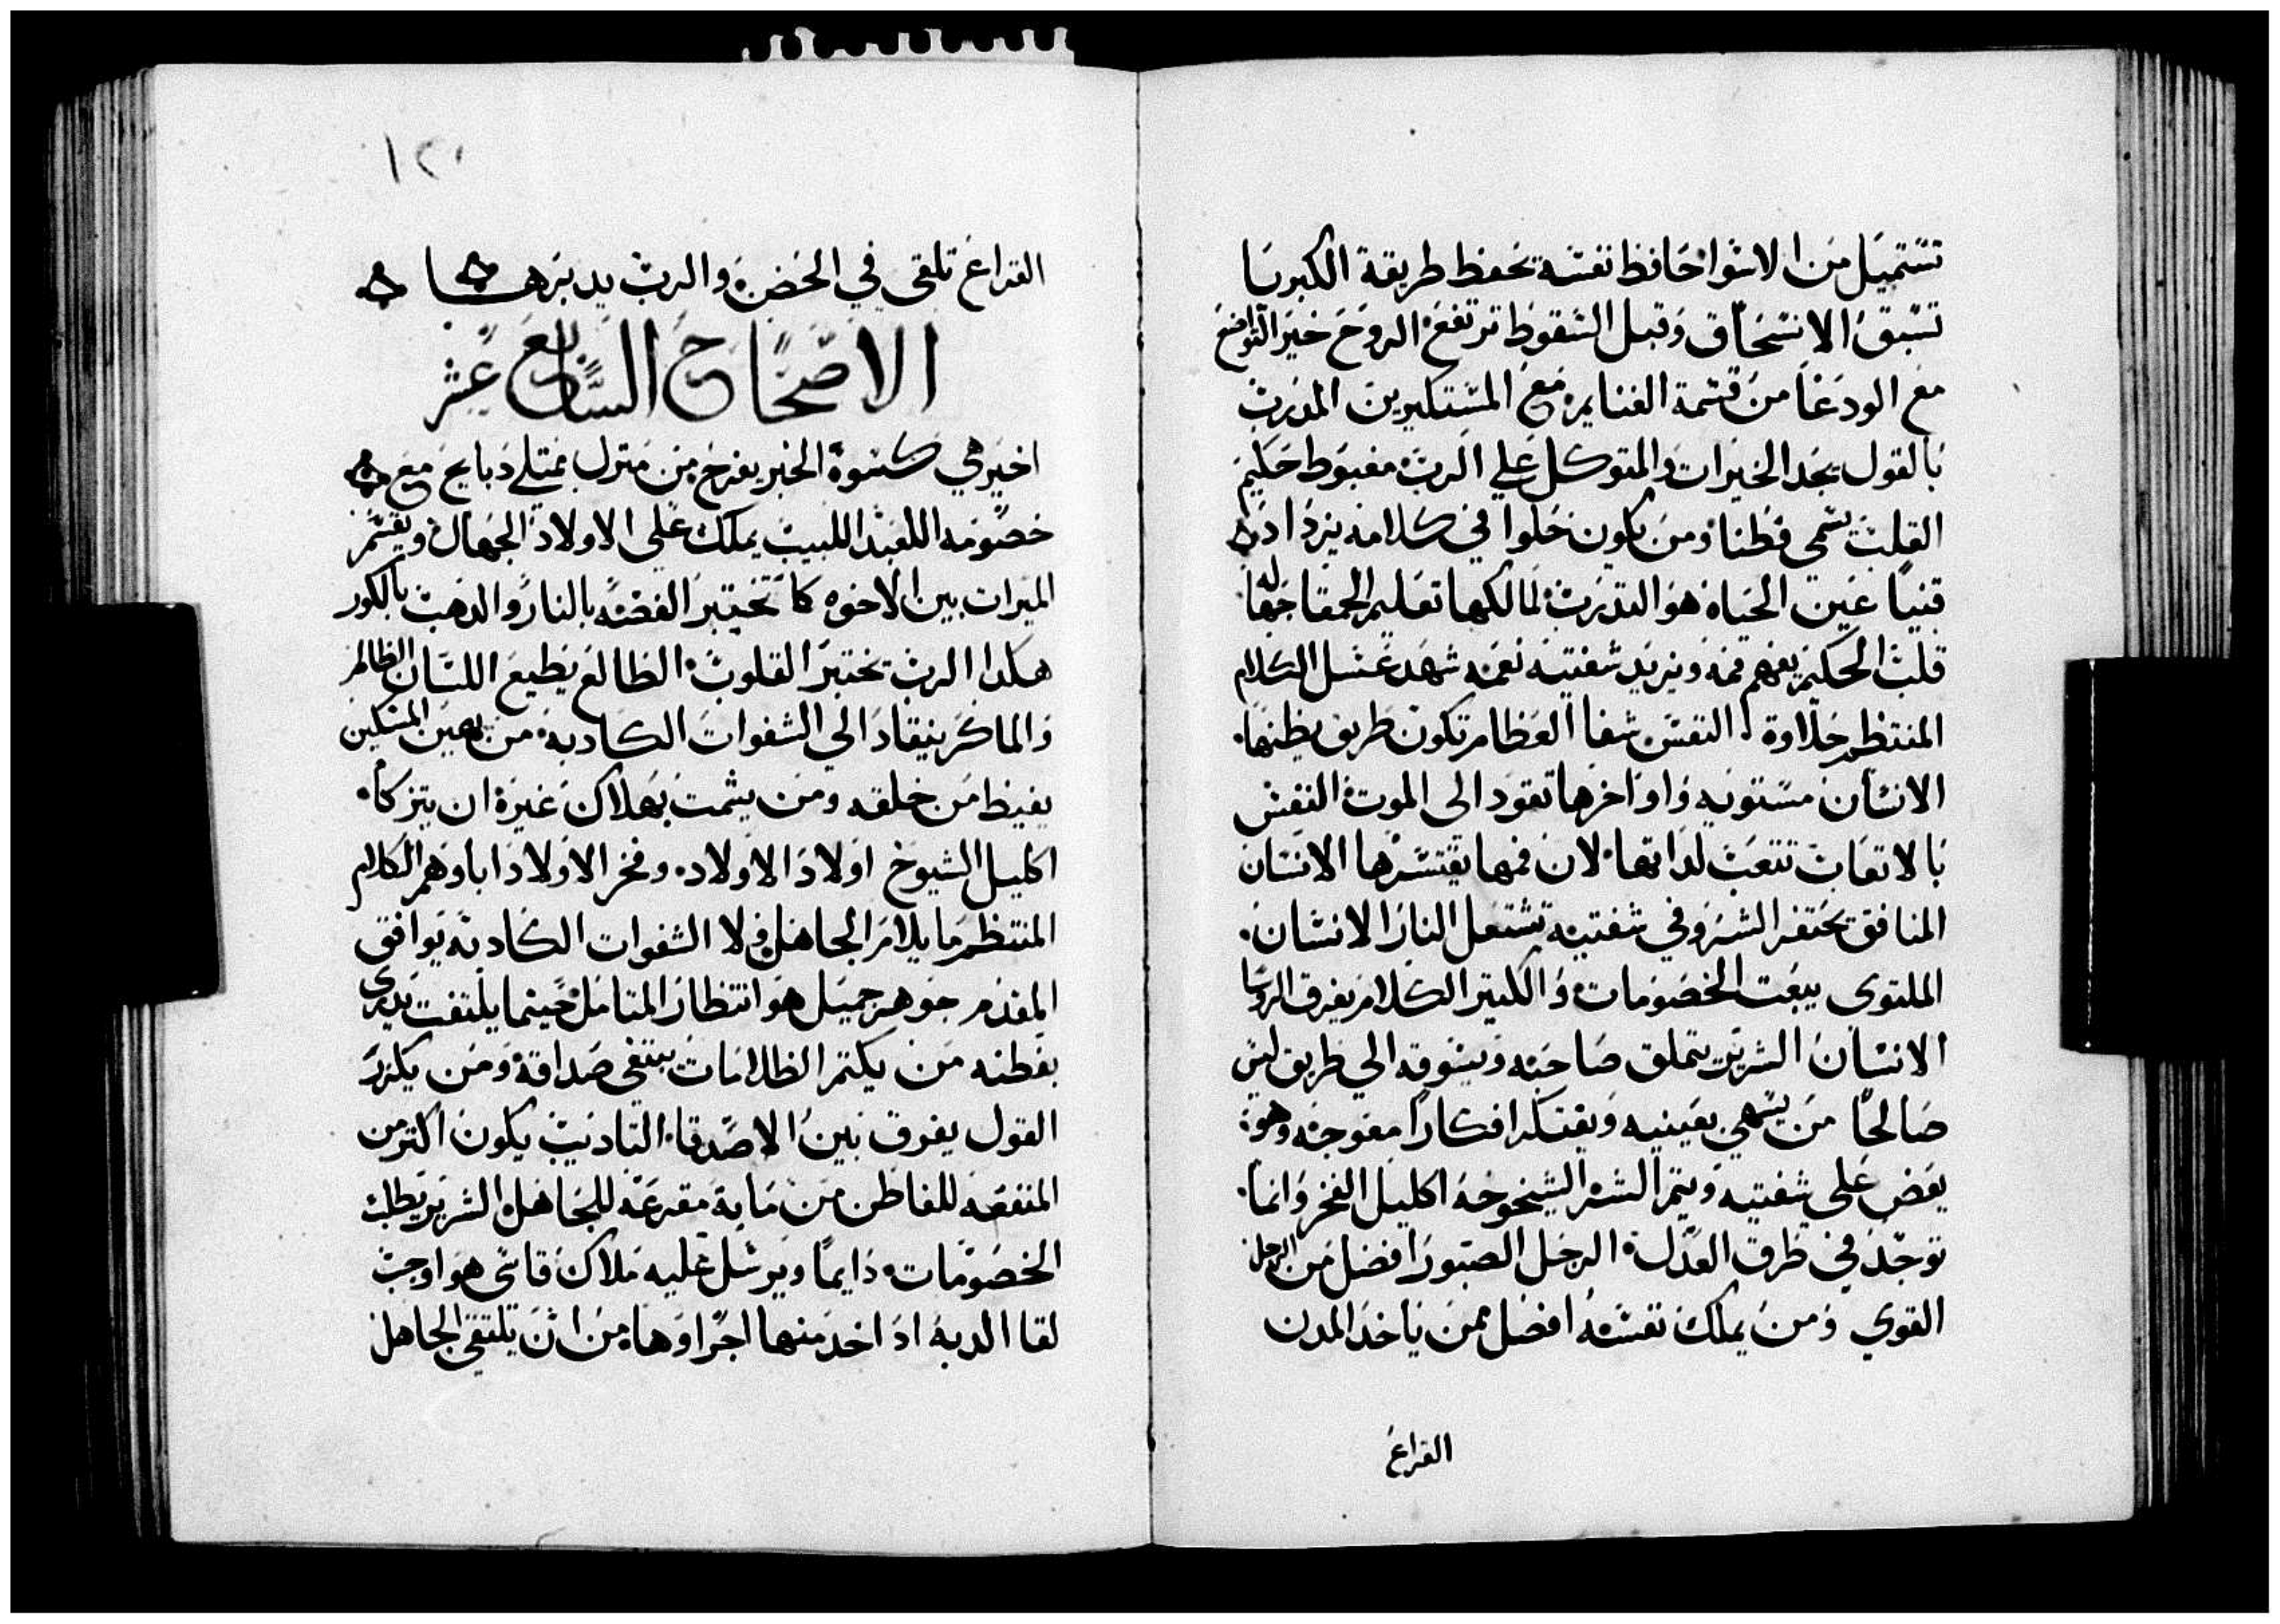 تستميل من الاسوا حافظ نفسه يحفظ طريقة الكبريا
تسبق الانسحاق وقبل السقوط ترتفع الروح خير التواضع
مع الودعا من قسمة الغنايم مع المستكبرين المدرب
بالقول يجد الخيرات والمتوكل علي الرب مغبوط حكيم
القلب يسمي فطنا ومن يكون حلوا في كلامه يزداد
قنيا عين الحياه هو التدرب لمالكها تعليم الحمقا جهاله
قلب الحكيم يفهم فمه ويزيد شفتيه نعمه شهد عسل الكلام
المنتظم حلاوة النفس شفا العظام تكون طريق يظنها
الانسان مستويه واواخرها تقود الى الموت النفس
بالاتعاب تتعب لداتها لان فمها يقتسرها الانسان
المنافق يحتفر الشر وفي شفتيه تشتعل النار الانسان
الملتوى يبعت الخصومات والكتير الكلام يفرق الروسا
الانسان الشرير يتملق صاحبه ويسوقه الي طريق ليس
صالحا من يسهي بعينيه ويفتكر افكارا معوجه وهو
يعض على شفتيه ويتم الشر الشيخوخه اكليل الفخر وانما
توجد في طرق العدل الرجل الصبور افضل من الرجل
القوي ومن يملك نفسه افضل ممن ياخد المدن
القراع
١٢٠
القراع تلقى في الحضن والرب يدبرها
الاصحاح السابع عشر
اخير هي كسوة الخبز بفرح من منزل ممتلي دبايح مع
خصومه العبد اللبيب يملك علي الاولاد الجهال ويقسم
الميرات بين الاخوه كما تختبر الفضه بالنار والدهب بالكور
هكدا الرب يختبر القلوب الظالع يطيع اللسان الظالم
والماكر ينقاد الي الشفوات الكادبه من يهين المسكين
يغيظ من خلقه ومن يشمت بهلاك غيره ان يتزكا
اكليل الشيوخ اولاد الاولاد وفخر الاولاد اباوهم الكلام
المنتظم ما يلام الجاهل ولا الشفوات الكادبه توافق
المقدم جوهر جميل هو انتظار المتامل حينما يلتفت يدري
بفطنه من يكتم الظلامات يبتغي صداقة ومن يكرر
القول يفرق بين الاصدقا التاديب يكون اكتر من
المنفعه للفاطن من ماية مقرعه للجاهل الشرير يطلب
الخصومات دايما ويرسل عليه ملاك قاسي هو اوجب
لقا الدبه اد اخد منها اجراوها من ان يلتقي الجاهل